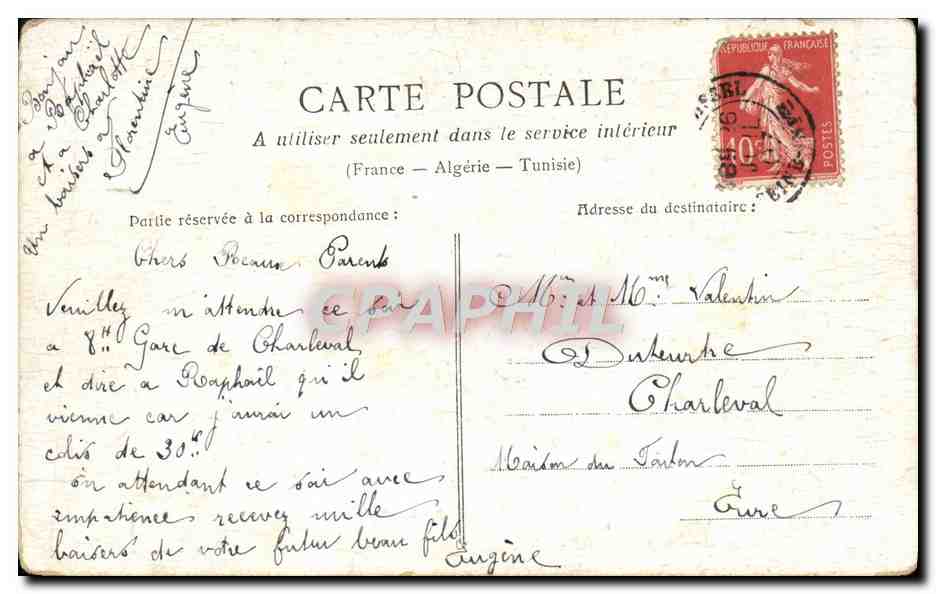 Bonjour
a Raphaël
et a Charlotte
Un baisers a
Florentine
Eugène
CARTE POSTALE
A utiliser seulement dans le service intérieur
(France — Algérie — Tunisie)
RÉPUBLIQUE FRANÇAISE
10c
POSTES
Partie réservée à la correspondance :
Chers Beaux Parents
Veuillez m'attendre ce soir
a 8H Gare de Charleval
et dire a Raphaël qu'il
vienne car j'aurai un
colis de 30K
en attendant ce soir avec
impatience recevez mille
baisers de votre futur beau fils
Eugène
Adresse du destinataire :
Mr et Mme Valentin
Duteurtre
Charleval
Maison du
Eure
GRAPHIL